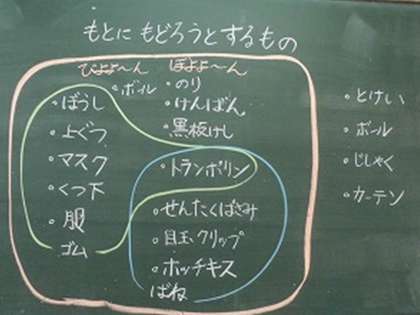 もとに もどろうとするもの
びよよ〜ん
ぼよよ〜ん
・ボール
・ぼうし
・上ぐつ
・マスク
・くつ下
・服
ゴム
・のり
・けんばん
・黒板けし
・トランポリン
・せんたくばさみ
・目玉クリップ
・ホッチキス
ばね
・とけい
・ボール
・じしゃく
・カーテン